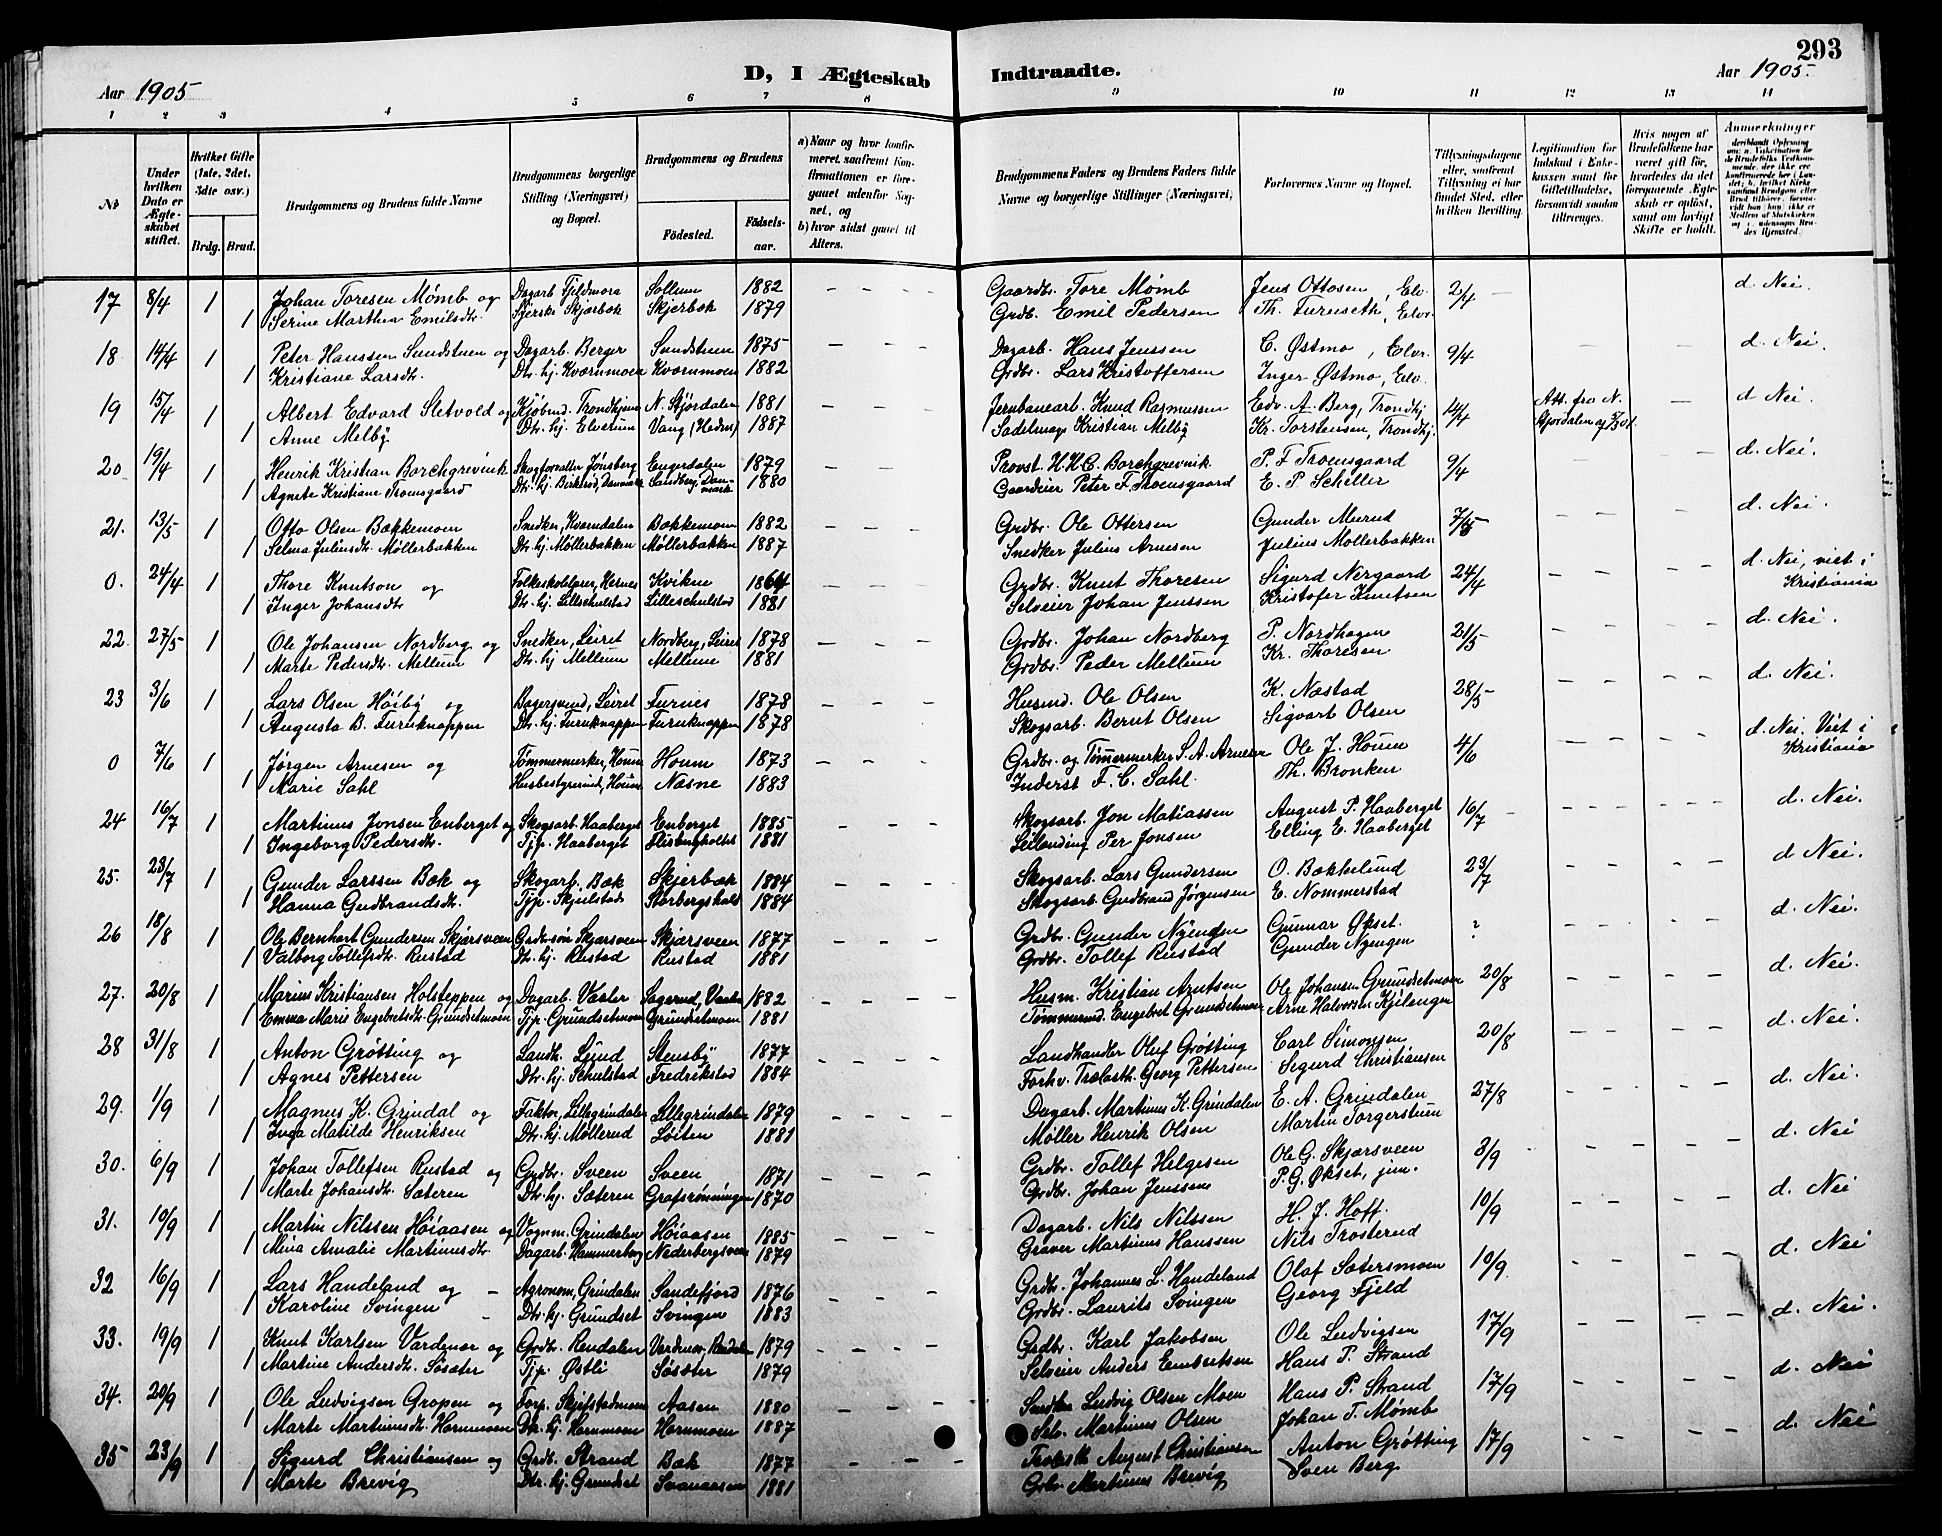 293
D, I Ægteskab Indtraadte.
Aar 1905 Aar 1905.
1 2 3 4 5 6 7 8 9 10 11 12 13 14
№
Under hvilken Dato er Ægteskabet stiftet.
Hvilket Gifte (1ste, 2det, 3dte osv.)
Brdg. Brud.
Brudgommens og Brudens fulde Navne
Brudgommens borgerlige Stilling (Næringsvei) og Bopæl.
Brudgommens og Brudens
Fødested. Fødselsaar.
a) Naar og hvor konfirmeret, saafremt Konfirmationen er foregaaet udenfor Sognet, og
b) hvor sidst gaaet til Alters.
Brudgommens Faders og Brudens Faders fulde Navne og borgerlige Stillinger (Næringsvei)
Forlovernes Navne og Bopæl.
Tillysningsdagene eller, saafremt Tillysning ei har fundet Sted, efter hvilken Bevilling.
Legitimation for Indskud i Enkekassen samt for Giftetilladelse, forsaavidt saadan tiltrænges.
Hvis nogen af Brudefolkene har været gift før, hvorledes da det foregaaende Ægteskab er opløst, samt om lovligt Skifte er holdt.
Anmerkninger
17 8/4 1 Johan Toresen Mømb og Dagarb. Fjeldmora Sollum 1882 – – – Gaardbr. Tore Mømb Jens Ottosen, Elv. 2/4 d. Nei.
1 Serine Marthea Emilsdtr. Skjærbæk Skjerbæk 1879 Grdb. Emil Pedersen Th. Furuseth, Elvr.
18 14/4 1 Peter Hanssen Sundstuen og Dagarb. Berger Sundstuen 1875 – – – Dagarb. Hans Jenssen C. Østmo, Elvr. 9/4 d. Nei.
1 Kristiane Larsdtr. Dtr. hj. Kværnmoen Kværnmoen 1882 Grdbr. Lars Kristoffersen Inger Østmo, Elv.
19 15/4 1 Albert Edvard Sletvold og Kjøbmd. Trondhjem N. Stjørdalen 1881 – – – Jernbanearb. Knud Rasmussen Edv. A. Berg, Trondhj. 14/4 Att. fra N. d Nei.
1 Anne Melby Dtr. hj. Elverum Vang (Hedm) 1887 Sadelmag. Kristian Melby Kr. Torstensen, Trondhj.
20 19/4 1 Henrik Kristian Borchgrevink Skogforvalter Jønsberg Engerdalen 1879 – – – Provst H. H. C. Borchgrevink P. F. Troensgaard 9/4 d. Nei.
1 Agnete Kristiane Troensgaard Dtr. hj. Birkerød, Danmark Sandberg, Danmark 1880 Gaardeier Peter F. Troensgaard E. P. Schiller
21. 13/5 1 Otto Olsen Bækkemoen Snedker, Kværndalen Bækkemoen 1882 – – – Grdbr. Ole Ottersen Gunder Murud 7/5 d. Nei.
1 Selma Juliusdtr. Møllerbakken Dtr. hj. Møllerbakken Møllerbakken 1887 Snedker Julius Arnesen Julius Møllerbakken
0. 24/4 1 Thore Knutson og Folkeskolelærer, Hernes Kvikne 1864 – – – Grdbr. Knut Thoresen Sigurd Nergaard 24/4 d. Nei, viet i Kristiania
1 Inger Johansdtr Dtr. hj. Lilleschulstad Lilleschulstad 1881 Selveier Johan Jenssen Kristofer Knutsen
22. 27/5 1 Ole Johansen Nordberg og Snedker, Leiret Nordberg, Leiret 1878 – – Grdbr. Johan Nordberg P. Nordhagen 21/5 d. Nei.
1 Marte Pedersdtr. Mellum Dtr. hj Mellum Mellum 1881 Grdbr. Peder Mellum Kr. Thoresen
23 3/6 1 Lars Olsen Høiby og Bagersvend, Leiret Furnes 1878 – – – Husmd. Ole Olsen K. Næstad 28/5 d. Nei.
1 Augusta B. Furuknappen Dtr. hj. Furuknappen Furuknappen 1878 Skogsarb. Bernt Olsen Sigvart Olsen
0 7/6 1 Jørgen Arnesen og Tømmermerker, Houm Houm 1873 – – – Grdbr. og Tømermerker S. A. Arnesen Ole J. Houm 4/6 d. Nei. Viet i Kristiania
1 Marie Sahl Husbestyrerind, Houm Næsne 1883 Inderst F. C. Sahl. Th. Bronken
24 16/7 1 Martinus Jonsen Enberget og Skogsarb. Haaberget Enberget 1885 – – – Skogsarb. Jon Matiassen August P. Haaberget 16/7 d. Nei.
1 Ingeborg Pedersdtr. Tjp. Haaberget 1881 Leilending Per Jonsen Elling E. Haaberget
25. 23/7 1 Gunder Larssen Bæk og Skogarb. Bæk Skjerbæk 1884 – – – Skogsarb. Lars Gundersen O. Bækkelund 23/7 d Nei.
1 Hanna Gudbrandsdtr. Tjp. Skjulstad Storbergshold 1884 Skogsarb. Gudbrand Jørgensen E. Nommerstad
26 18/8 1 Ole Bernhart Gundersen Skjærsveen Grdbr.søn Skjærsveen Skjærsveen 1877 – – – Grdbr. Gunder Nyengen Gunnar Økset. ? d. Nei.
1 Valborg Tollefsdtr. Rustad Dtr. hj. Rustad Rustad 1881 Grdbr. Tollef Rustad Gunder Nyengen
27. 20/8 1 Marius Kristiansen Holsteppen og Dagarb. Vaaler Sagerud, Vaaler 1882 – – – Husm. Kristian Arntsen Ole Johansen Grundsetmoen 20/8 d. Nei.
1 Emma Marie Engebretsdtr. Grundsetmoen Tjp. Grundsetmoen Grundsetmoen 1881 Tømmermd. Engebret Grundsetmoen Arne Halvorsen Kjelangen
28 31/8 1 Anton Grøtting og Landh. Lund Stensby 1877 – – – Landhandler Oluf Grøtting Carl Simonsen 20/8 d. Nei.
1 Agnes Pettersen Dtr. hj. Schulstad Fredrikstad 1884 Forhv. Trælasth. Georg Pettersen Sigurd Christiansen
29. 1/9 1 Magnus K. Grindal og Faktor, Lillegrindalen Lillegrindalen 1879 – – – Dagarb. Martinus K. Grindalen E. A. Grindalen 27/8 d. Nei.
1 Inga Matilde Henriksen Dtr. hj. Møllerud Løiten 1881 Møller Henrik Olsen Martin Torgerstuen
30. 6/9 1 Johan Tollefsen Rustad og Grdbr. Sveen Sveen 1871 – – – Grdbr. Tollef Helgesen Ole G. Skjærsveen 3/9 d. Nei
1 Marte Johansdtr. Sæteren Dtr. hj. Sæteren Grafsrønningen 1870 Grdbr. Johan Jenssen P. G. Økset, jun.
31. 10/9 1 Martin Nilssen Høiaasen og Vognm. Grindalen Høiaasen 1885 – – – Dagarb. Nils Nilssen H. J. Hoff. 10/9 d. Nei
1 Mina Amalie Martinusdtr. Dagarb. Hammerberg Nederbergsveen 1879 Graver Martinus Hanssen Nils Trosterud
32 16/9 1 Lars Handeland og Agronom, Grindalen Sandefjord 1876 – – – Grdbr. Johannes L. Handeland Olaf Sætersmoen 10/9 d. Nei
1 Karoline Svingen Dtr. hj. Grundset Svingen 1883 Grdbr. Laurits Svingen Georg Fjeld
33. 19/9 1 Knut Karlsen Vardenær og Grdbr. Rendalen 1879 – – – Grdbr. Karl Jakobsen Ole Ludvigsen 17/9 d. Nei.
1 Martine Andersdtr. Søsæter Tjp. Østli Søsæter 1879 Selveier Anders Embretsen Hans P. Strand
34. 20/9 1 Ole Ludvigsen Gropen og Forp. Skjefstadmoen Aasen 1880 – – – Snedker Ludvig Olsen Moen Hans P. Strand 17/9 d. Nei
1 Marte Martinusdtr. Hornmoen Dtr. hj. Hornmoen Hornmoen 1887 Selv. Martinus Olsen Johan T. Mømb
35 23/9 1 Sigurd Christiansen og Grdb. Strand Bæk 1877 – – – Trælasth August Christiansen Anton Grøtting 17/9 d. Nei
1 Marte Brevig Dtr. hj. Grundset Svanaasen 1881 Grbr. Martinus Brevig Sven Berg